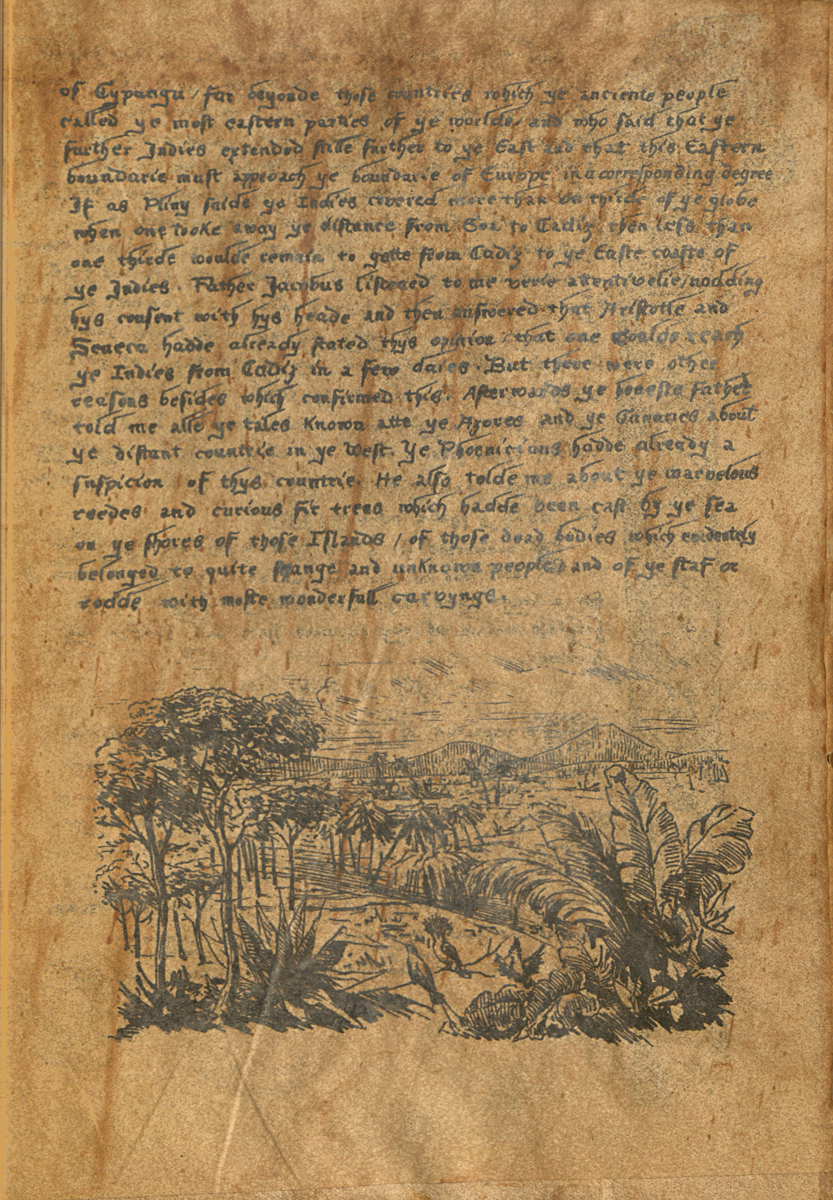 of Cypangu / far beyonde those countries which ye anciente people
called ye most eastern parties of ye worlde, and who said that ye
further Indies extended stille further to ye East and that this Eastern
boundarie must approach ye boundarie of Europe in a corresponding degree
If as Pliny saide ye Indies covered more than on thirde of ye globe
when one tooke away ye distance from Goa to Cadiz then less than
one thirde woulde remain to gette from Cadiz to ye Easte coaste of
ye Indies. Father Jacobus listened to me verie attentivelie / nodding
hys consent with hys heade and then answered that Aristotle and
Seneca hadde already stated thys opinion / that one coulde reach
ye Indies from Cadiz in a few daies. But there were other
reasons besides which confirmed this. Afterwards ye honeste Father
told me alle ye tales known atte ye Azores and ye Canaries about
ye distant countrie in ye West. Ye Phoenicians hadde already a
suspicion of thys countrie. He also tolde me about ye marvelous
reedes and curious fir trees which hadde been cast by ye sea
on ye shores of those Islands / of those dead bodies which evidentely
belonged to quite strange and unknown people / and of ye staf or
rodde with moste wonderfull carvynge.